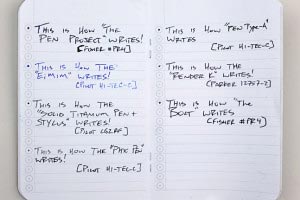 • This is how "The
Pen Project" writes!
[Fisher #PR4]
• This is how the
writes!
[Pilot Hi-Tec-C]
• This is how the
"Solid Titanium Pen +
Stylus" writes!
[Pilot
• This is how the "Phx Pen"
writes!
[Pilot Hi-Tec-C]
• This is how "Pen Type-A"
writes
[Pilot Hi-Tec-C]
• This is how the
"Render K" writes!
[Parker
• This is how "The
Bolt writes!
[Fisher #PR4]